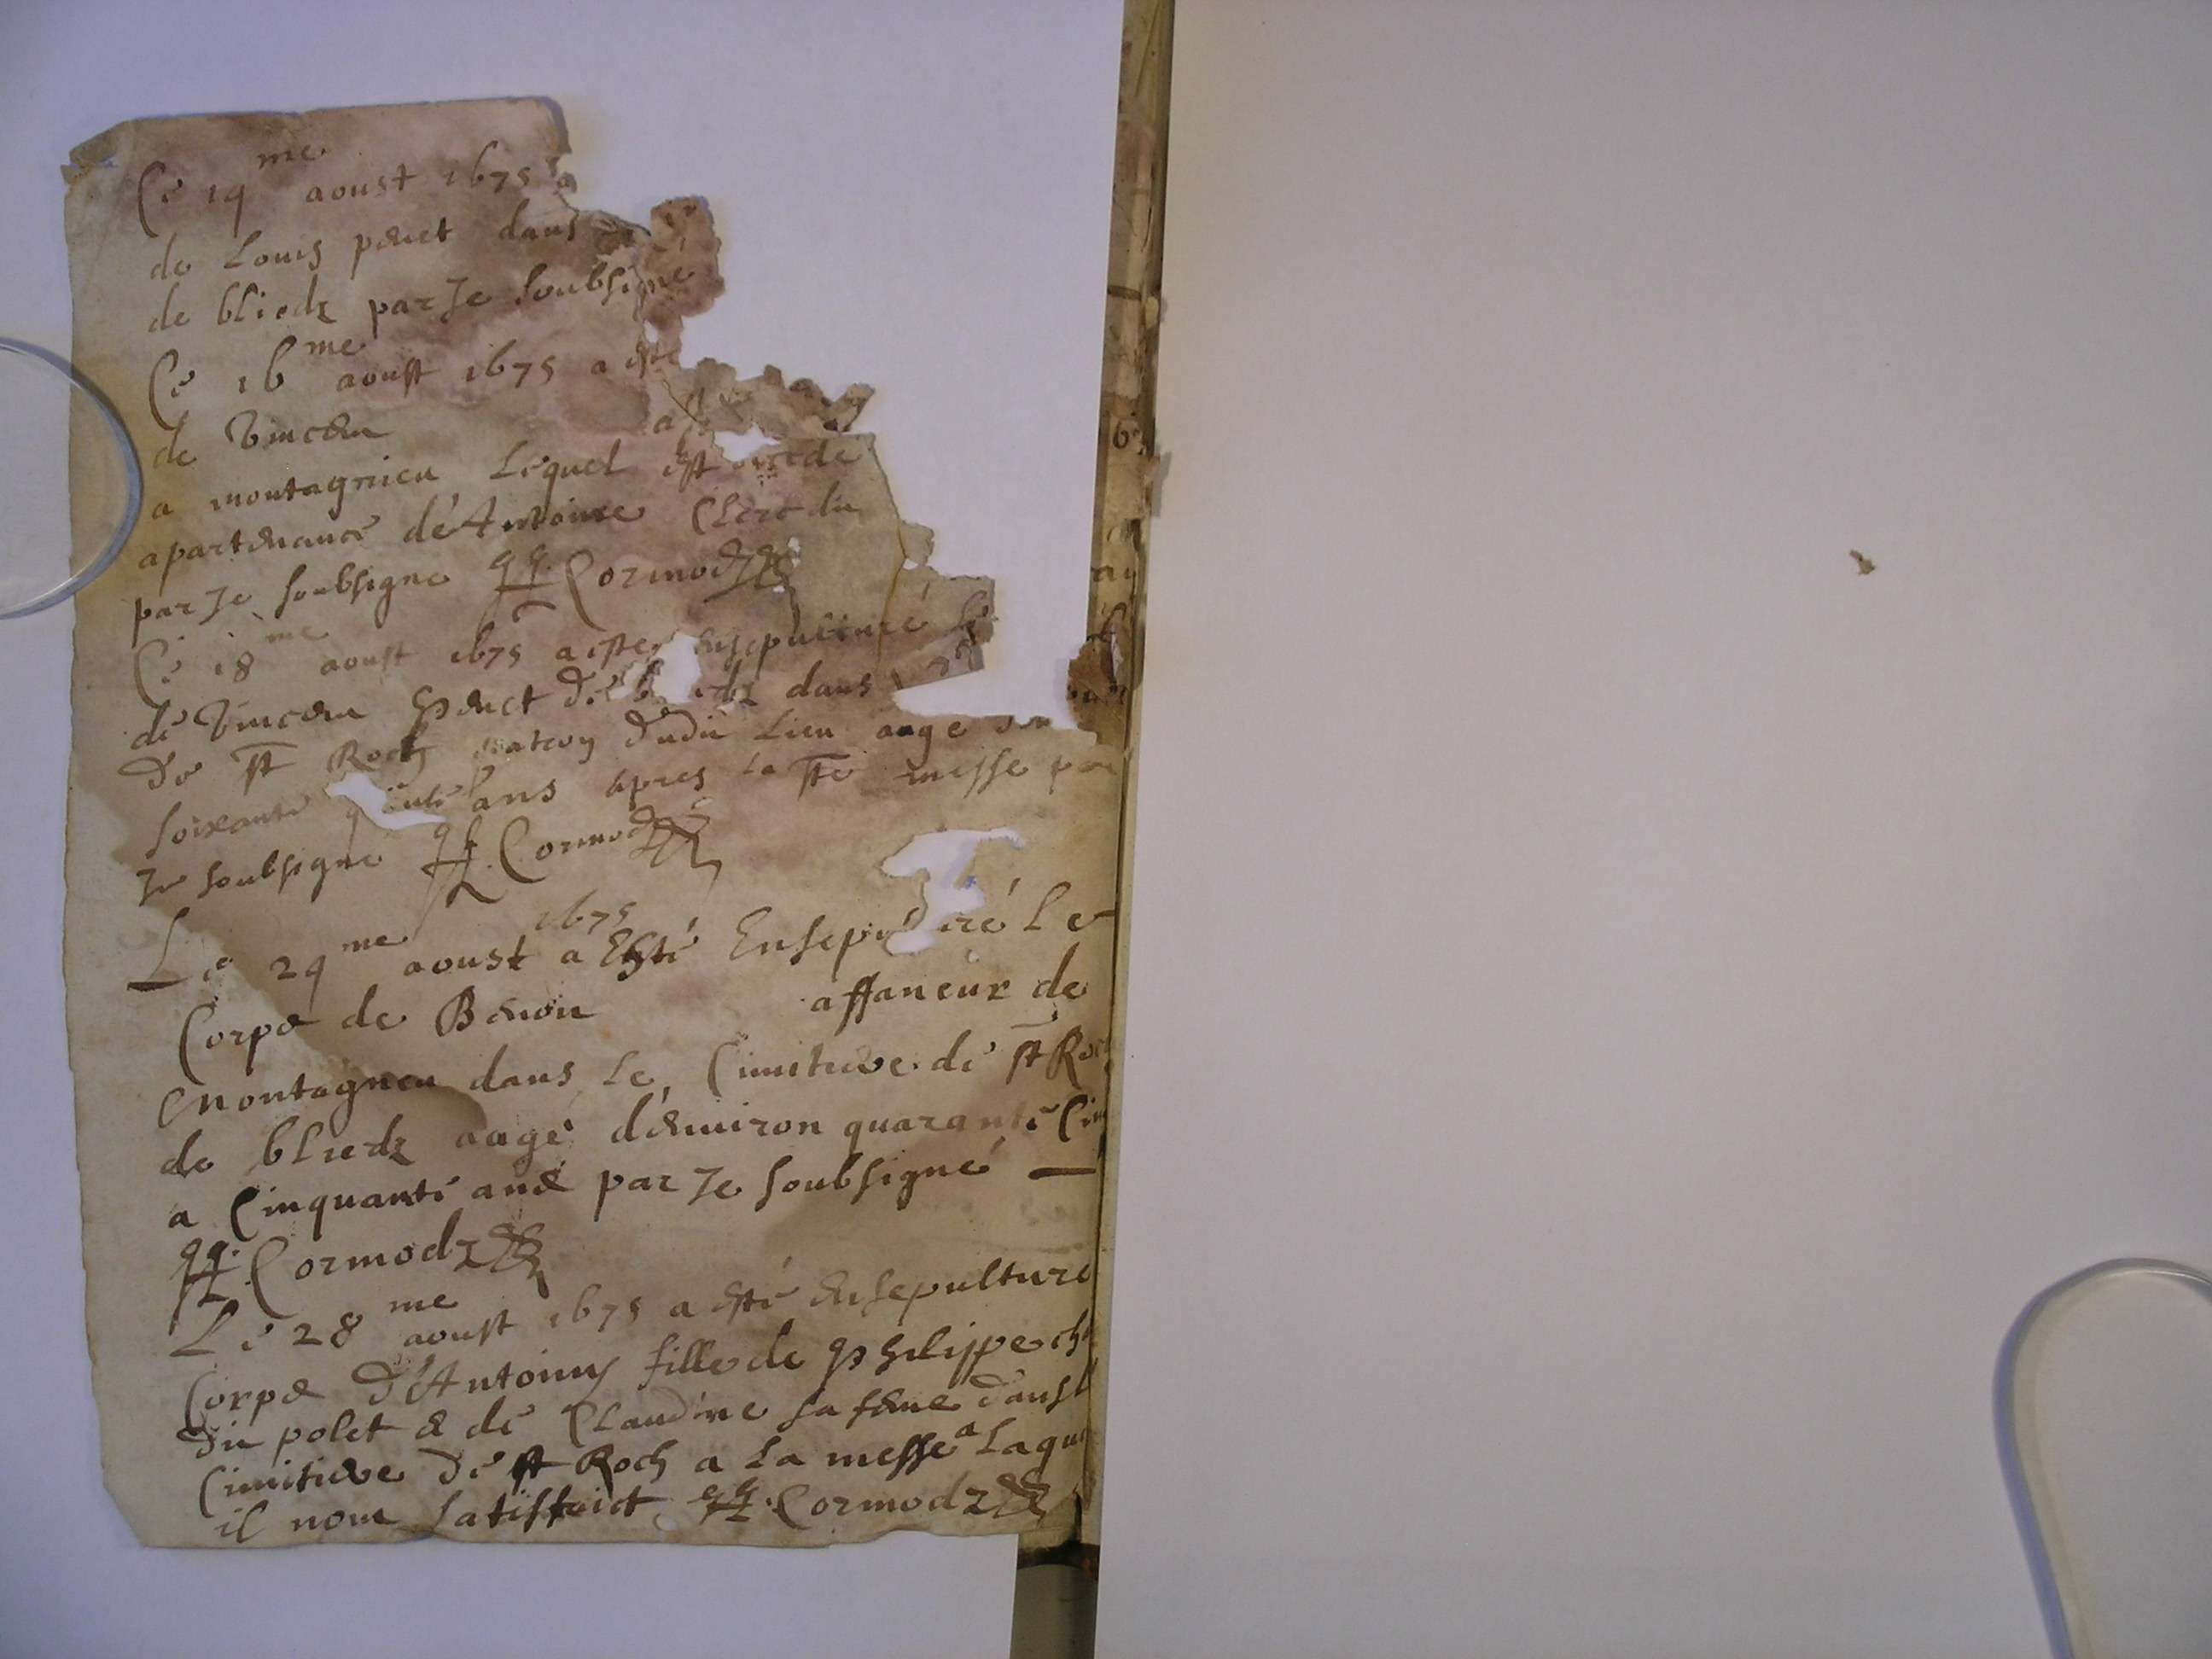 Ce 14me aoust 1675 a
de Louis penet dans
de bliedz par Je soubsigné
Ce 16me aoust 1675 a esté
de Vincen aff
a montagnieu Lequel est decede
apartenance de Antoine Clerc du
par Je soubsigne Cormodz
Ce 18me aoust 1675 a este ensepulturé le
de Vincen penet de b edz dans
de st Roch patron dudit Lieu aage
soixante ans apres la ste messe par
Je soubsigné Cormodz
1675
Le 24me aoust a Esté Ensepu ré Le
Corps de Benoit affaneur de
Montagneu dans Le Cimitiere de st Roc
de bliedz aagé d'enuiron quarante Cin
a Cinquante ans par Je soubsigné
Cormodz
Le 28me aoust 1675 a esté Ensepulture
Corps d'Antoine fille de philippe ch
du polet & de Claudine sa feme dans l
Cimitiere de st Roch a la messe a Laqu
il nont satisfaict Cormodz